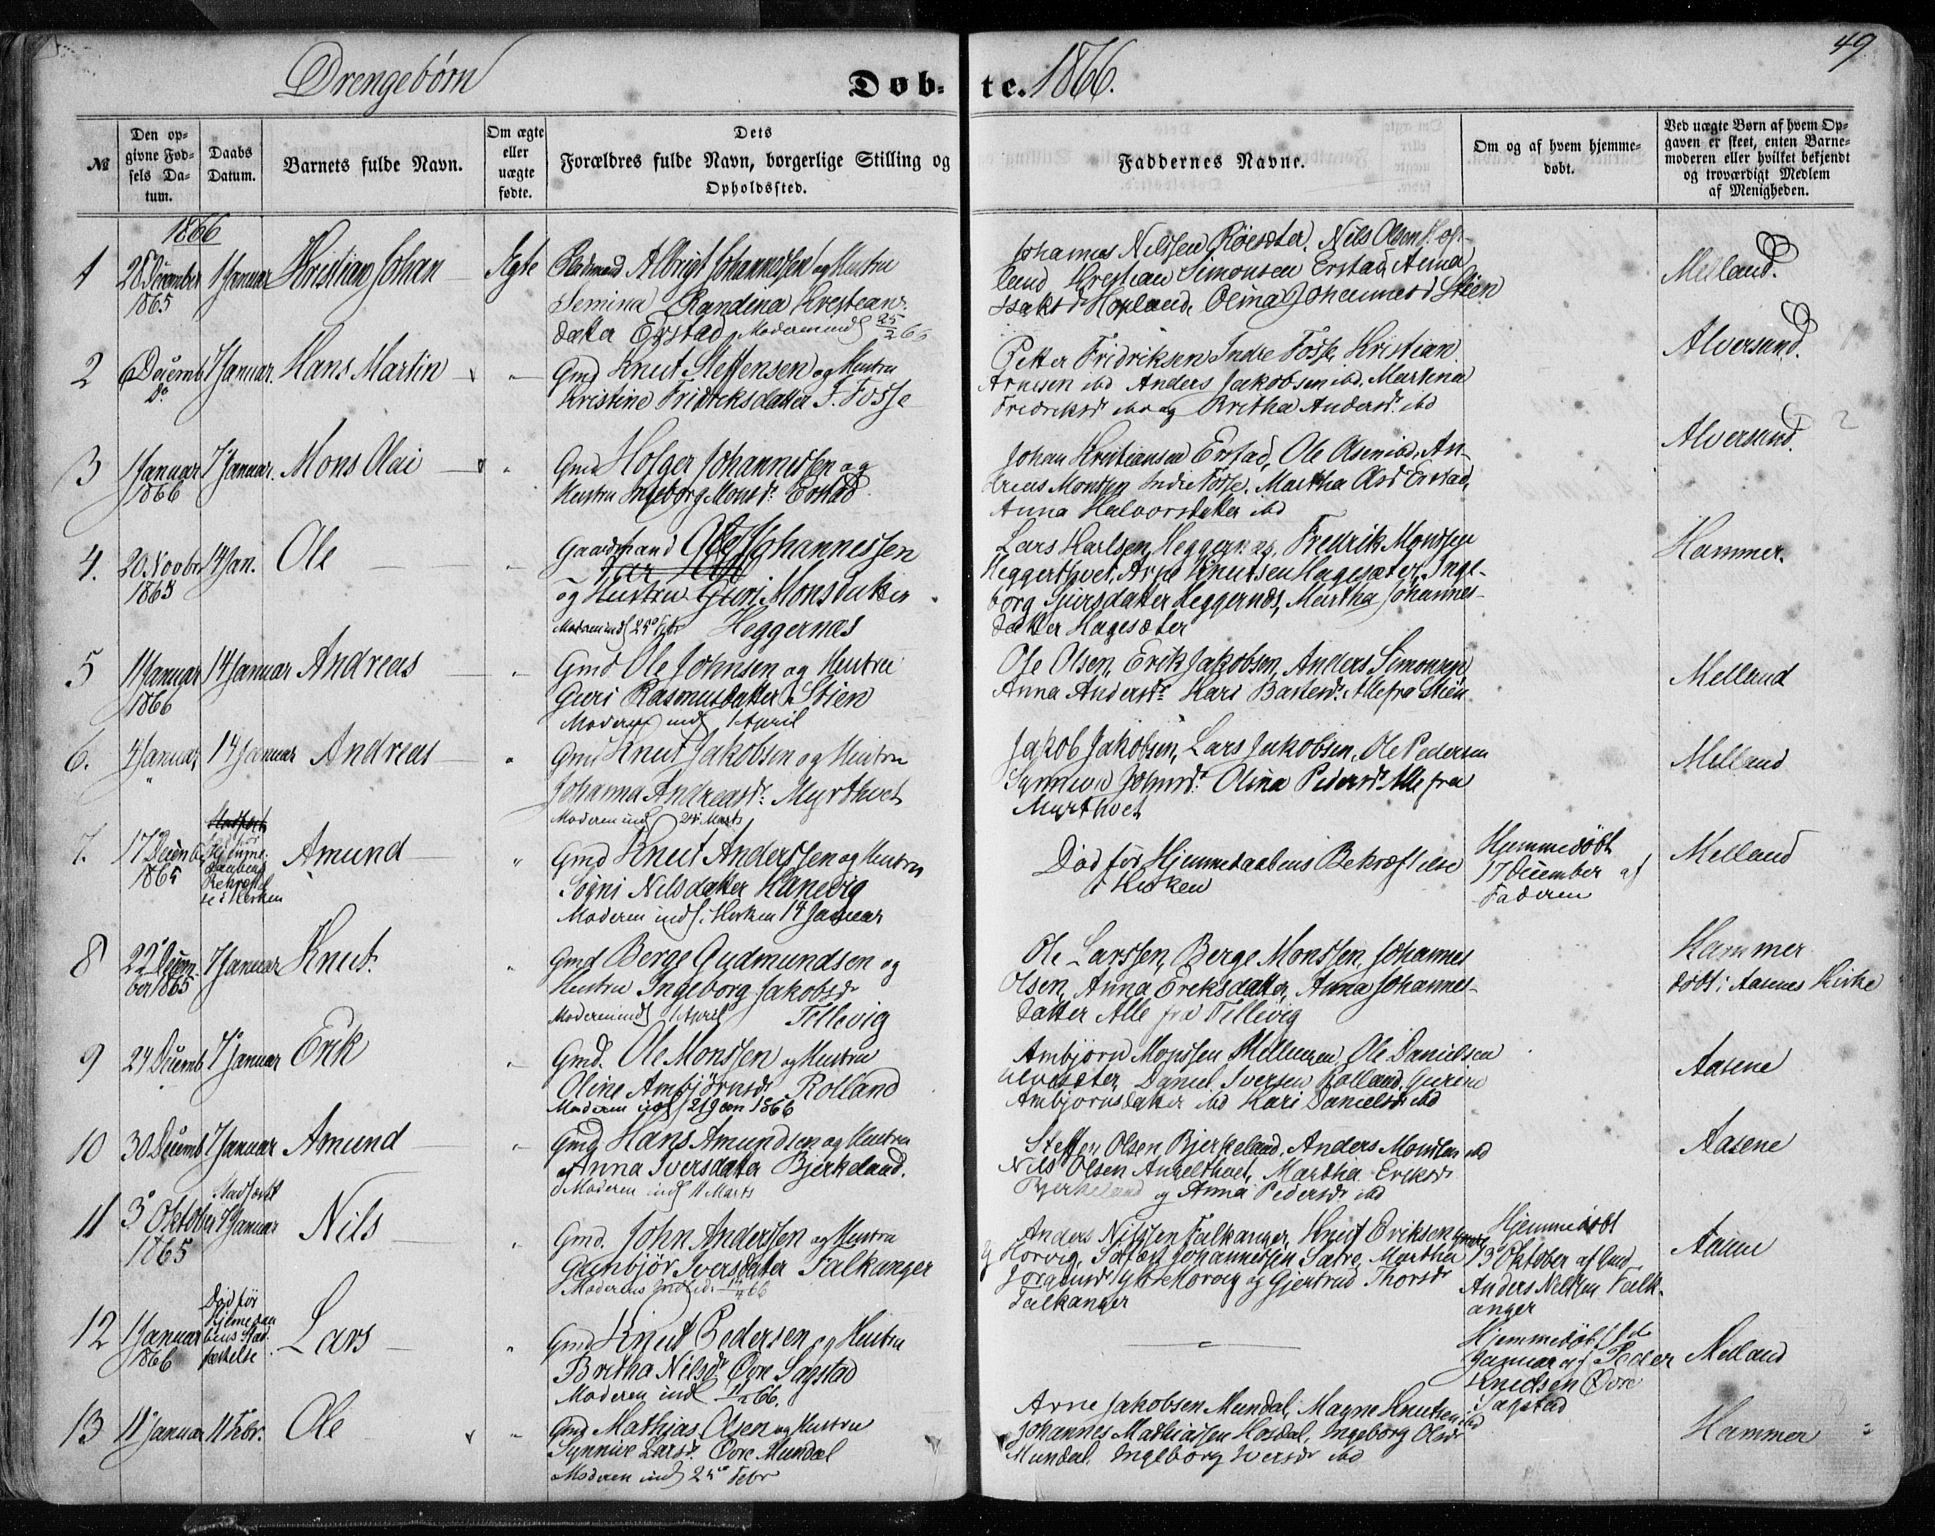 49
Drengebørn
Døb-
te. 1866.
№
Den op-
givne Fød-
sels Da-
tum.
Daabs
Datum.
Barnets fulde Navn.
Om ægte
eller
uægte
fødte.
Dets
Forældres fulde Navn, borgerlige Stilling og
Opholdssted.
Faddernes Navne.
Om og af hvem hjemme-
døbt.
Ved uægte Børn af hvem Op-
gaven er skeet, enten Barne-
moderen eller hvilket bekjendt
og troværdigt Medlem
af Menigheden.
1866
1 28 December 1865 1 Januar Kristian Johan Ægte
Albrigt Johannessen og Hustru
Semina Randina Krestians-
datter Erstad Moderen indl 25/2 66
Johannes Nilssen Röesæter, Nils Olsen Hop-
land Krestian Simonsen Erstad, Anna
Isaksd Hopland, Olina Johannesd Stien
Melland.
2 6 Decemb Do 7 Januar. Hans Martin
Gmd Knut Steffensen og Hustru
Kristine Fridriksdatter I. Fosse
Petter Fridriksen Indre Fosse, Kristian
Arnesen ibd Anders Jakobsen ibd, Martina
Fredriksd ibd og Britha Andersd. ibd
Alversund.
3 1 Januar 1866 7 Januar. Mons Olai
Gmd Holger Johannessen og
Hustru Ingeborg Monsd. Erstad
Johan Kristiansen Erstad, Ole Olsen ibd, An-
dreas Monsen Indre Fosse, Martha Olsd Erstad,
Anna Halvorsdatter ibd
Alversund.
4. 20 Novbr 1865 14 Jan. Ole
Gaardmand Ole Johannessen
og Hustru Guri Monsdatter
Moderen indl 25 Febr Heggernæs
Lars Karlsen Heggernæs, Fredrik Monssen
Heggerthvet, Arne Knutsen Hagesæter, Inge-
borg Sjursdatter Heggernæs, Martha Johannes-
datter Hagesæter
Hammer.
5 11 Januar 1866 14 Januar Andreas
Gmd Ole Johnsen og Hustru
Guri Rasmusdatter Stien
Moderen indl 1 April
Ole Olsen, Erik Jakobsen, Anders Simonsen
Anna Andersd. Kari Baardsd. Alle fra Stien
Melland
6. 4 Januar 14 Januar Andreas
Gmd Knut Jakobsen og Hustru
Johanna Andreasd. Myrthvet
Moderen indl 25 Marts
Jakob Jakobsen, Lars Jakobsen, Ole Pedersen
Synneve Johnsd. Olina Pedersd. Alle fra
Myrthvet
Melland
7. 17 Decemb 1865
Hjemme-
daabens
Bekræftel
se i Kirken
Amund
Gmd Knut Anderssen og Hustru
Sögni Nilsdatter Hanevig
Moderen indl. Kirken 14 Januar
Död för Hjemmedaabens Bekræftelse
i Kirken
Hjemmedöbt
17 December af
Faderen
Melland
8 22 Decem-
ber 1865 7 Januar Knut.
Gmd Berge Gudmundsen og
Hustru Ingeborg Jakobsd.
Moderen indl 1 April Tellevig
Ole Larssen, Berge Monssen, Johannes
Olsen, Anna Eriksdatter, Anna Johannes-
datter Alle fra Tellevig
Hammer
döbt i Aasenes Kirke
9 24 Decemb 7 Januar Erik
Gmd. Ole Monssen og Hustru
Oline Ambjörnsd. Rolland
Moderen indl 21 Jan 1866
Ambjörn Monssen, Ole Danielsen
Daniel Iversen Rolland, Gurine
Ambjörnsdatter ibd Kari Danielsd ibd
Aasene
10 30 Decemb 7 Januar Amund
Gmd. Hans Amundsen og Hustru
Anna Iversdatter Bjerkeland.
Moderen indl 11 Marts
Steffen Olsen Bjerkeland, Anders Monssen ibd
Nils Olsen, Martha Eriksd
Bjerkeland og Anna Pedersd ibd
Aasene
11 3 Oktober 1865 Stadfæst 7 Januar Nils
Gmd. John Anderssen og Hustru
Gunbjör Iversdatter Falkanger
Anders Nilssen Falkanger, Knut Eriksen
Horvig, Johannessen Sætre, Martha
og Gjertrud Thorsd
Falkanger
Hjemmedöbt
13 Oktober af Gmd
Anders Nilssen Falk-
anger
Aasene
12 1 Januar 1866
Död för
Hjemedaa
bens Stad-
fæstelse.
Lars
Gmd Knut Pedersen og Hustru
Britha Nilsd Övre Sagstad
Moderen indl 11/2 66.
Hjemmedöbt
Januar af Peder
Knudsen Övre
Sagstad
Melland
13 11 Januar 11 Febr. Ole
Gmd Mathias Olsen og Hustru
Synnive Larsd. Övre Mundal
Moderen indl 25 Febr
Arne Jakobsen Mundal, Magne Knutsen ibd
Johannes Mathiassen Hosdal, Ingeborg Olsd
Mundal, Ingeborg Iversd ibd
Hammer